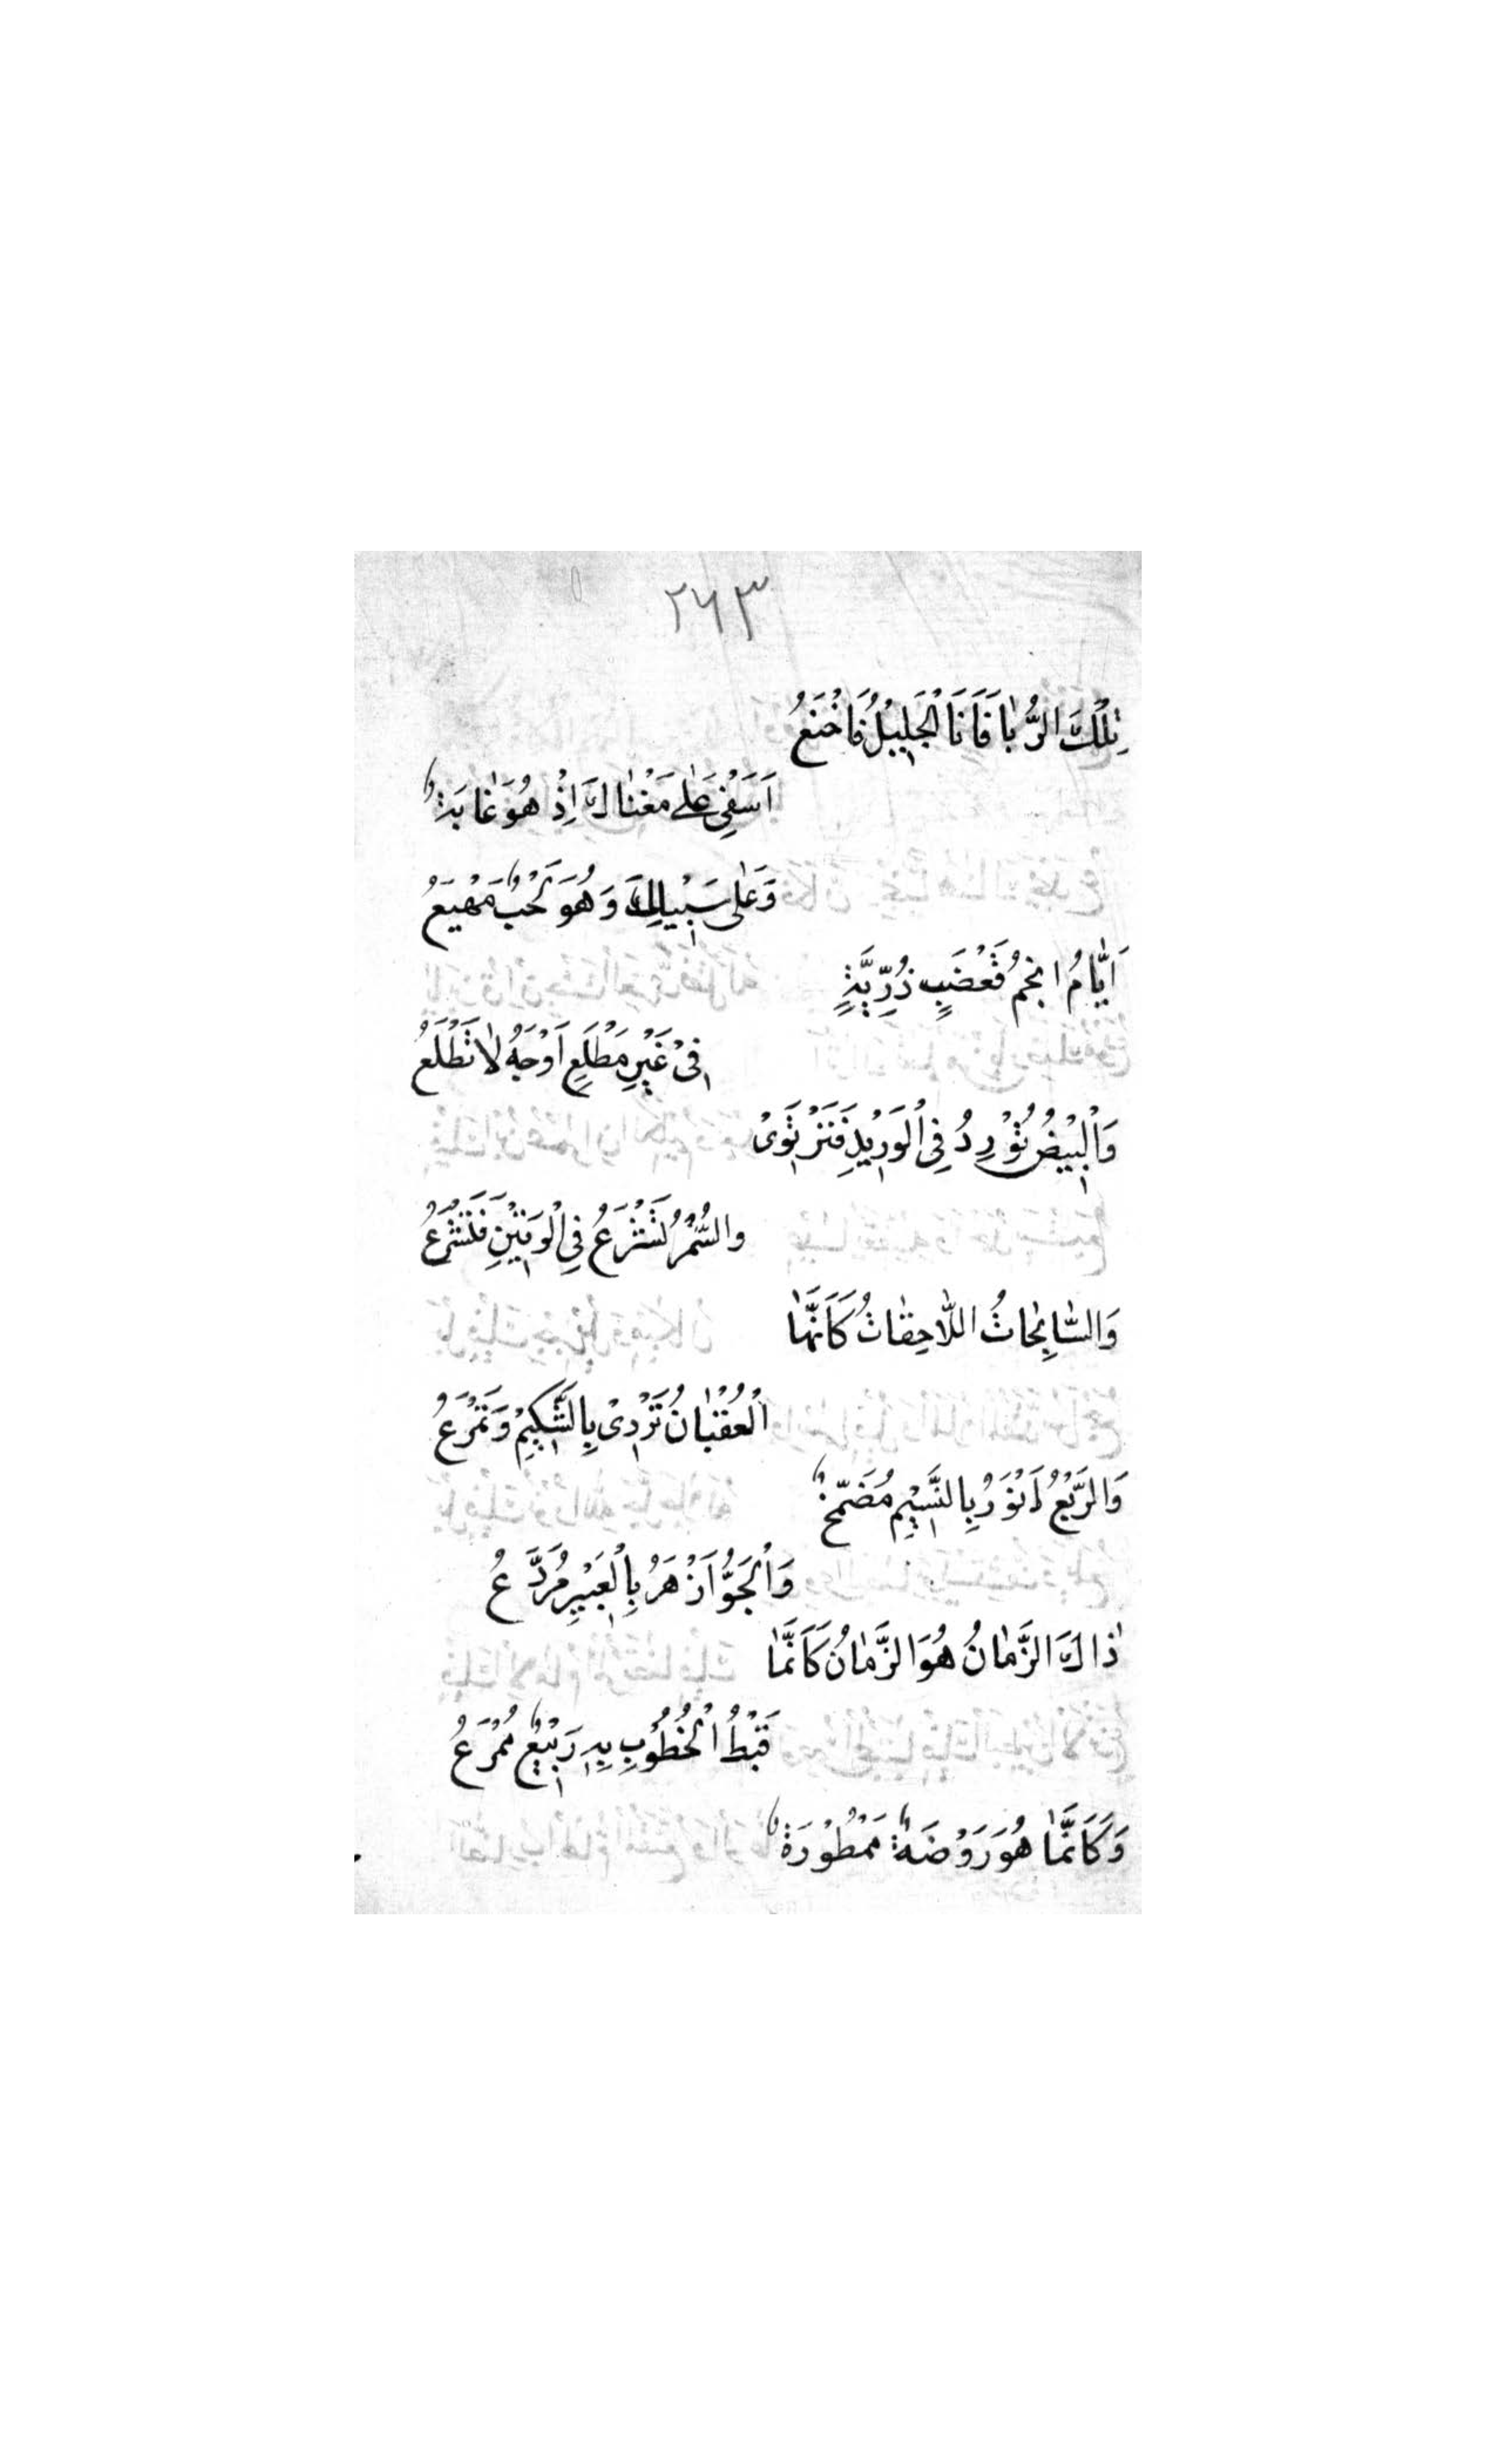 ٢٦٣
تِلْكَ الرُّبٰا فَاَنَا الْجَلِيْلُ فَاَخْنَعُ
اَسَفِيْ عَلٰى مَغْنٰاكَ اِذْ هُوَ غٰابَةٌ
وَعَلٰى سَبِيْلِكَ وَهُوَ لَحْبٌ مَهْيَعُ
اَيّٰامُ انجم قَعْضَبٍ دُرِّيَّةٍ
فِىْ غَيْرِ مَطْلَعِ اَوْجِهٖ لٰا تَطْلَعُ
وَالْبِيْضُ تُوْرِدُ فِي الْوَرِيْدِ فَتَرْتَوِىْ
والسُّمْرُ تَشْرَعُ فِي الْوَتِيْنِ فَتَشْرَعُ
وَالسّٰابِحٰاتُ اللّٰاحِقٰاتُ كَاَنَّهَا
الْعُقْبٰانُ تَرْدِىْ بِالشَّكِيْمِ وَتَمْزَعُ
وَالرَّبْعُ اَنْوَرُ بِالنَّسِيْمِ مُضَمَّخٌ
وَالْجَوُّ اَزْهَرُ بِالْعَبِيْرِ مُرَدَّعُ
ذٰاكَ الزَّمٰانُ هُوَ الزَّمٰانُ كَاَنَّمٰا
قَيْظُ الْخُطُوْبِ بِهِ رَبِيْعٌ مُمْرَعُ
وَكَاَنَّمٰا هُوَ رَوْضَةٌ مَمْطُوْرَةٌ